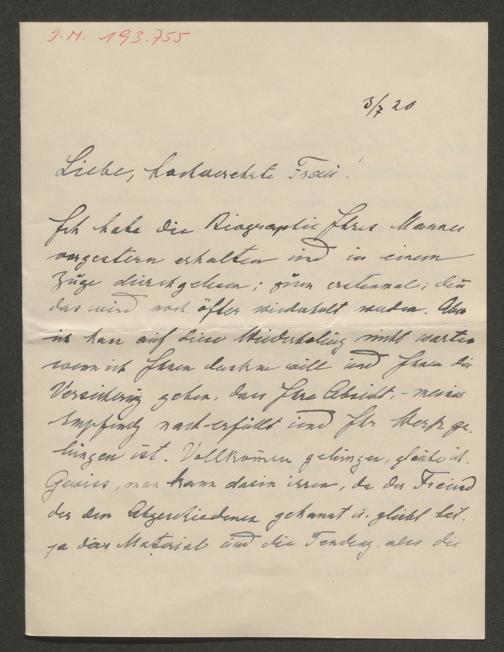 I.N. 193.755
3/7 20
Liebe, hochverehrte Frau!
Ich habe die Biographie Ihres Mannes
vorgestern erhalten und in einem
Zuge durchgelesen; zum erstenmal; denn
das wird noch öfter wiederholt werden. Aber
ich kann auf diese Wiederholung nicht warten
wenn ich Ihnen danken will und Ihnen die
Versicherung geben, dass Ihre Absicht, - meiner
Empfindg nach - erfüllt und Ihr Werk ge-
lungen ist. Vollkommen gelungen, glaube ich.
Gewiss, man kann darin irren, da der Freund
der den Abgeschiedenen gekannt u. geliebt hat,
ja das Material und die Tendenz, also die